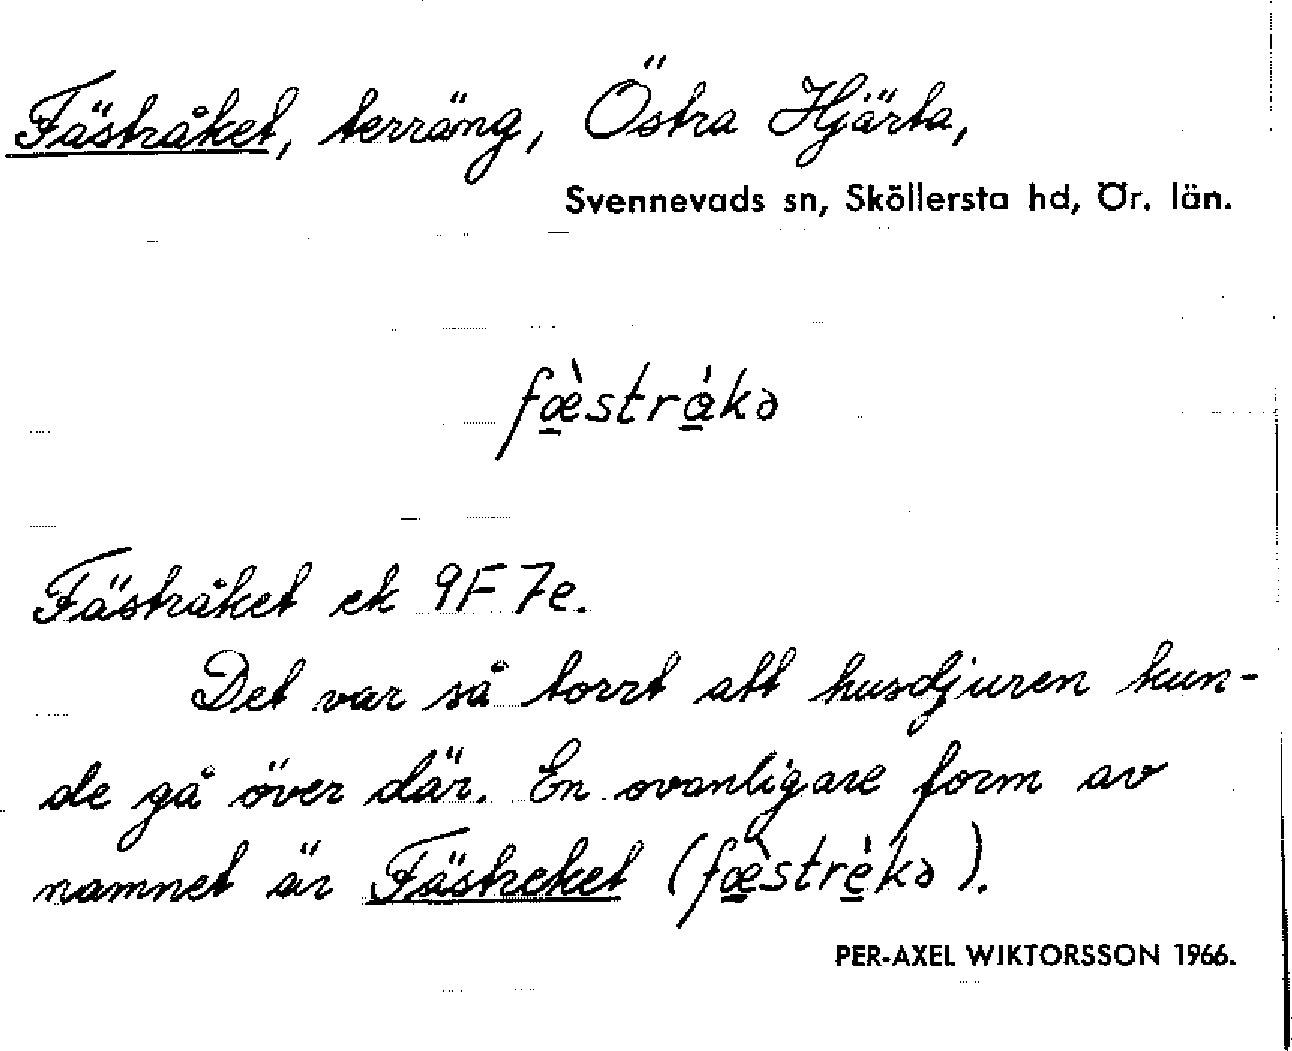 Fästråket, terräng, Östra Hjärta,
Svennevads sn, Sköllersta hd, Ör. län.
fæ̀stråkə
Fästråket ek 9F 7e.
Det var så torrt att husdjuren kun-
de gå över där. En ovanligare form av
namnet är Fästreket (fæ̀strékə).
PER-AXEL WIKTORSSON 1966.